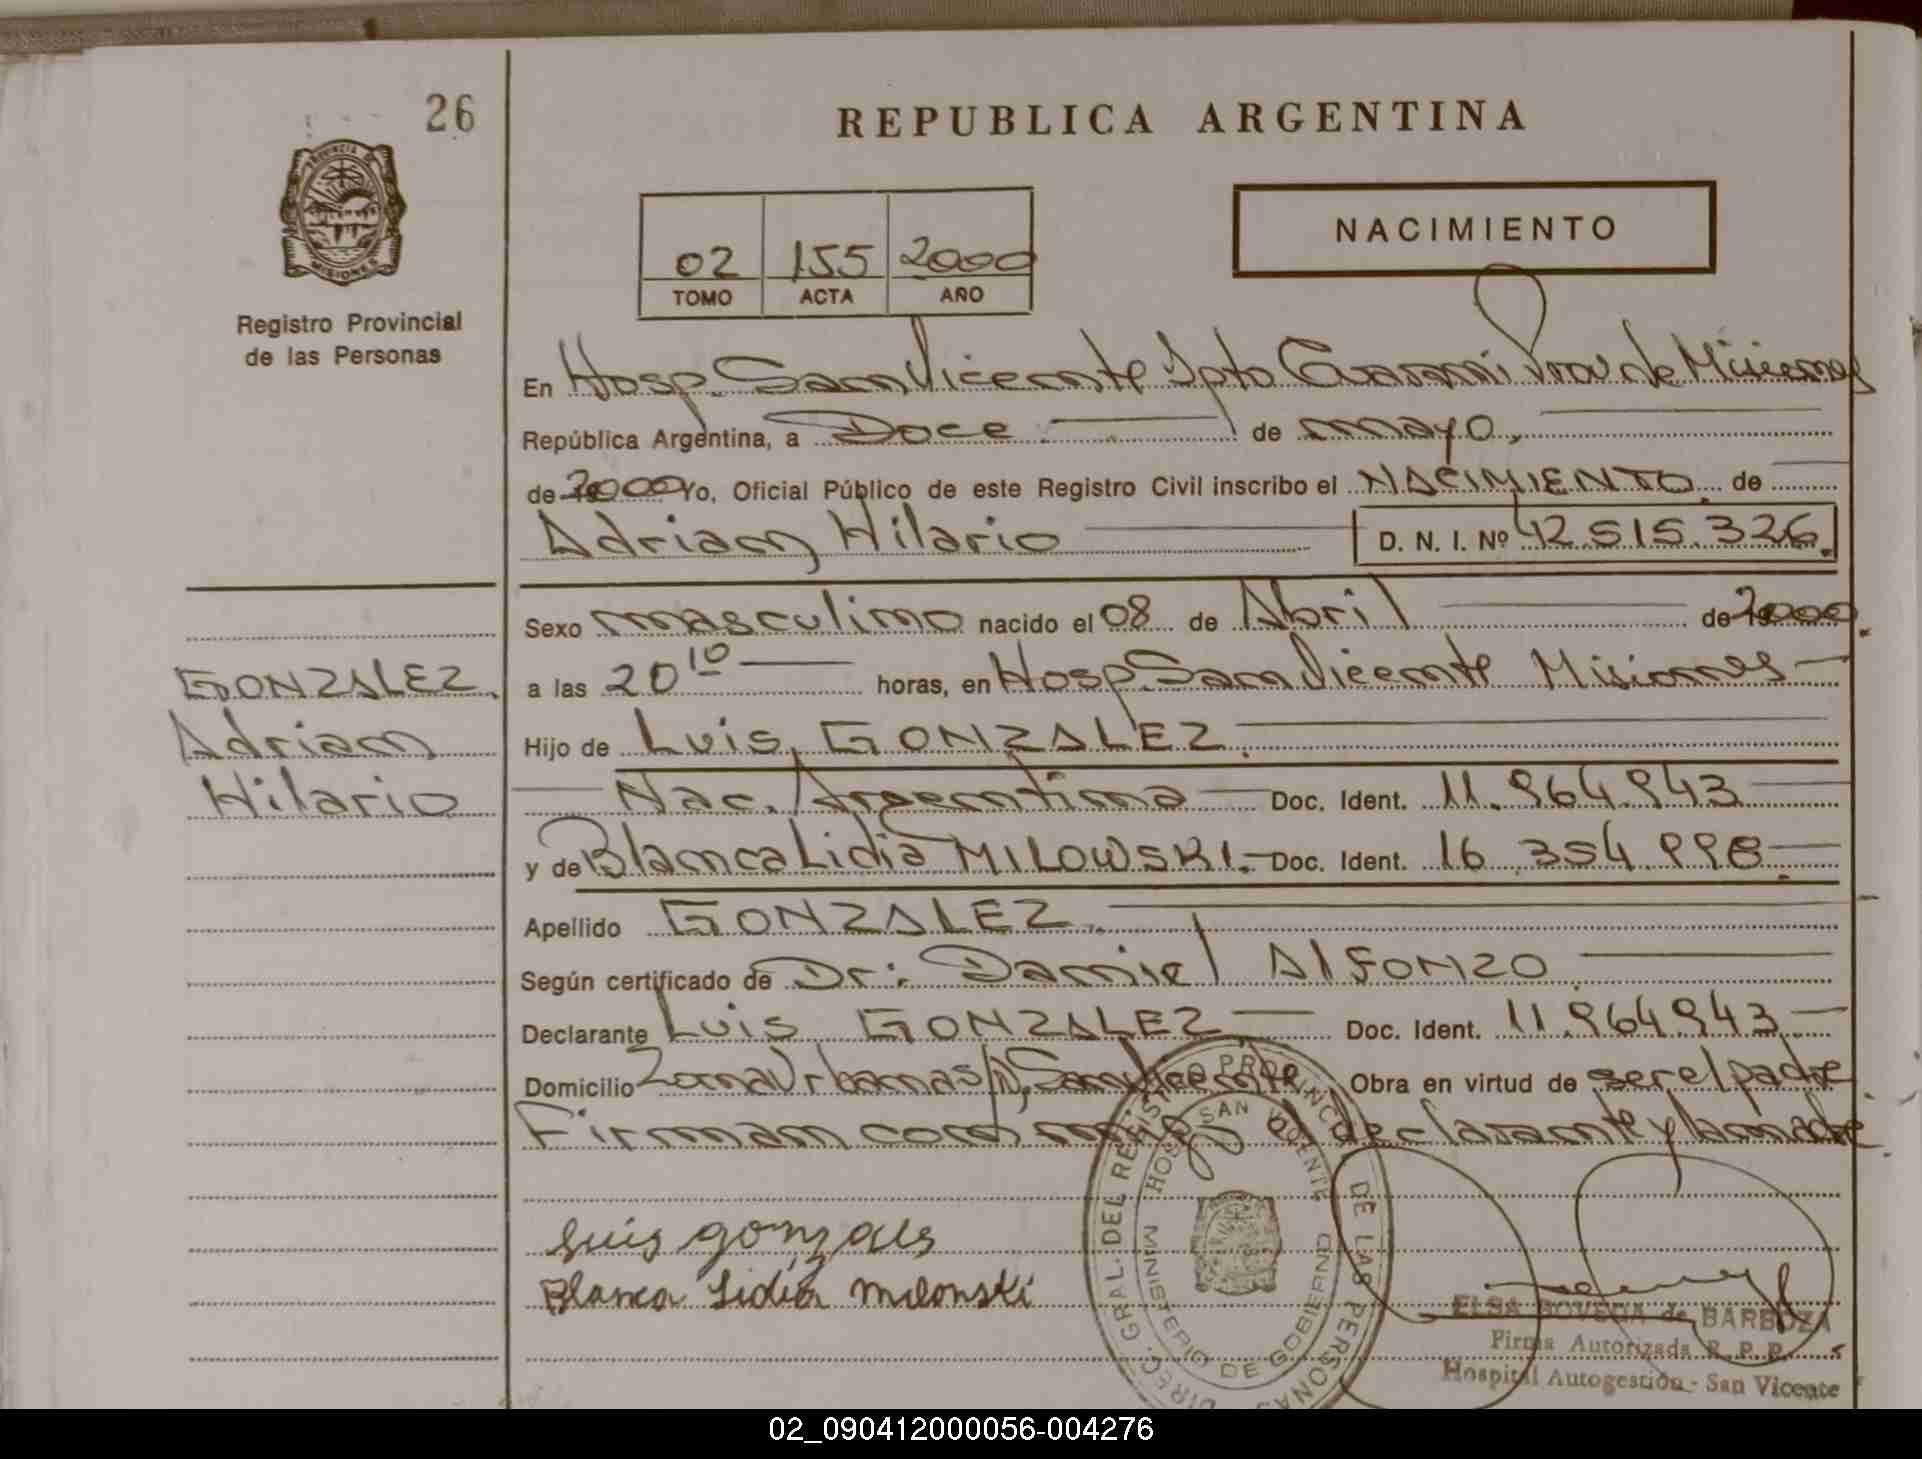 26
REPUBLICA ARGENTINA
PROVINCIA DE
MISIONES
Registro Provincial
de las Personas
02 155 2000
TOMO ACTA AÑO
NACIMIENTO
En Hosp. San Vicente Dpto Guaraní Prov de Misiones
República Argentina, a Doce de mayo,
de 2000 Yo, Oficial Público de este Registro Civil inscribo el NACIMIENTO. de
Adrian Hilario D. N. I. Nº 42.515.326.
Sexo masculino nacido el 08 de Abril de 2000.
a las 20 10 horas, en Hosp. San Vicente Misiones
GONZALEZ.
Adrian
Hilario
Hijo de Luis, GONZALEZ.
Nac. Argentina Doc. Ident. 11.964.943
y de Blanca Lidia MILOWSKI. Doc. Ident. 16.354.998.
Apellido GONZALEZ.
Según certificado de Dr: Daniel ALFONZO.
Declarante Luis GONZALEZ Doc. Ident. 11.964.943
Domicilio Zona Urbana s/n, San Vicente Obra en virtud de ser el padre
Firman con migo el declarante y la madre.
Luis gonzales
Blanca Lidia milonski
DIREC. GRAL. DEL REGISTRO PROVINCIAL DE LAS PERSONAS
HOSP. SAN VICENTE
MINISTERIO DE GOBIERNO
ELSA BOVEDA de BARBOZA
Firma Autorizada R. P. P.
Hospital Autogestión - San Vicente
02_090412000056-004276